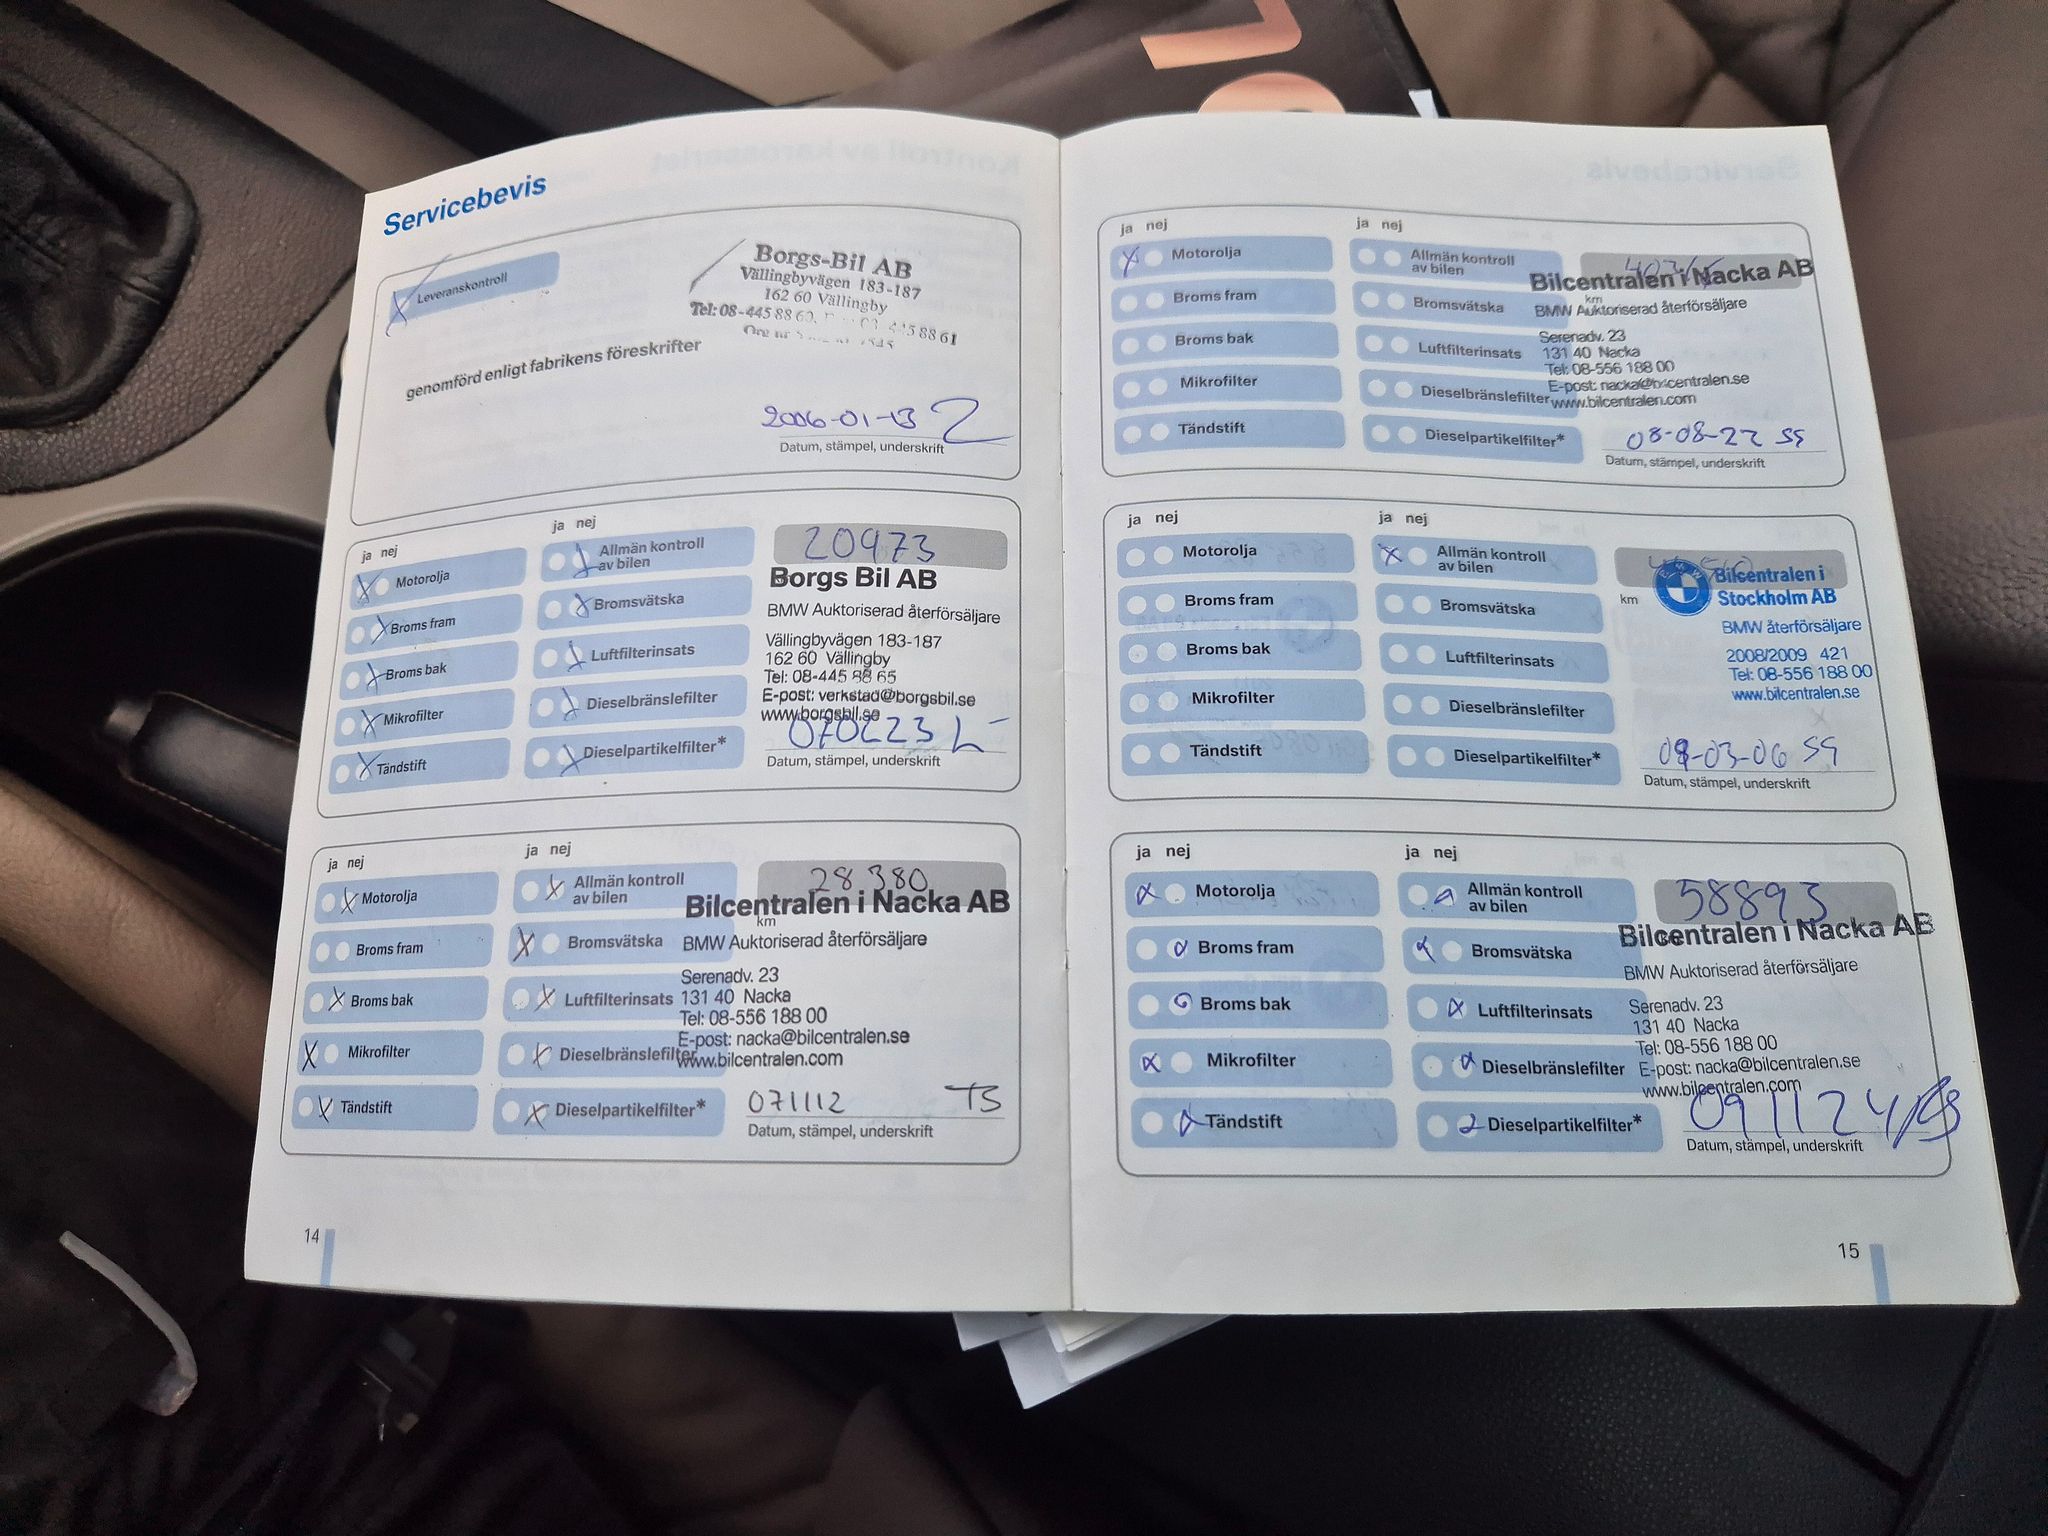 Servicebevis
Leveranskontroll
Borgs-Bil AB
Vällingbyvägen 183-187
162 60 Vällingby
Tel: 08-445 88 60, 445 88 61
genomförd enligt fabrikens föreskrifter
2006-01-13
Datum, stämpel, underskrift
ja nej
ja nej
Motorolja
Broms fram
Broms bak
Mikrofilter
Tändstift
Allmän kontroll
av bilen
Bromsvätska
Luftfilterinsats
Dieselbränslefilter
Dieselpartikelfilter*
20973
Borgs Bil AB
BMW Auktoriserad återförsäljare
Vällingbyvägen 183-187
162 60 Vällingby
Tel: 08-445 88 65
E-post: verkstad@borgsbil.se
www.borgsbil.se
070223
Datum, stämpel, underskrift
ja nej
ja nej
Motorolja
Broms fram
Broms bak
Mikrofilter
Tändstift
Allmän kontroll
av bilen
Bromsvätska
Luftfilterinsats
Dieselbränslefilter
Dieselpartikelfilter*
28380
Bilcentralen i Nacka AB
km
BMW Auktoriserad återförsäljare
Serenadv. 23
131 40 Nacka
Tel: 08-556 188 00
E-post: nacka@bilcentralen.se
www.bilcentralen.com
071112 TS
Datum, stämpel, underskrift
14
ja nej
ja nej
Motorolja
Broms fram
Broms bak
Mikrofilter
Tändstift
Allmän kontroll
av bilen
Bromsvätska
Luftfilterinsats
Dieselbränslefilter
Dieselpartikelfilter*
Bilcentralen i Nacka AB
km
BMW Auktoriserad återförsäljare
Serenadv. 23
131 40 Nacka
Tel: 08-556 188 00
E-post: nacka@bilcentralen.se
www.bilcentralen.com
08-08-22 SG
Datum, stämpel, underskrift
ja nej
ja nej
Motorolja
Broms fram
Broms bak
Mikrofilter
Tändstift
Allmän kontroll
av bilen
Bromsvätska
Luftfilterinsats
Dieselbränslefilter
Dieselpartikelfilter*
km
BMW
Bilcentralen i
Stockholm AB
BMW återförsäljare
2008/2009 421
Tel: 08-556 188 00
www.bilcentralen.se
09-03-06 SG
Datum, stämpel, underskrift
ja nej
ja nej
Motorolja
Broms fram
Broms bak
Mikrofilter
Tändstift
Allmän kontroll
av bilen
Bromsvätska
Luftfilterinsats
Dieselbränslefilter
Dieselpartikelfilter*
58893
Bilcentralen i Nacka AB
BMW Auktoriserad återförsäljare
Serenadv. 23
131 40 Nacka
Tel: 08-556 188 00
E-post: nacka@bilcentralen.se
www.bilcentralen.com
091124
Datum, stämpel, underskrift
15